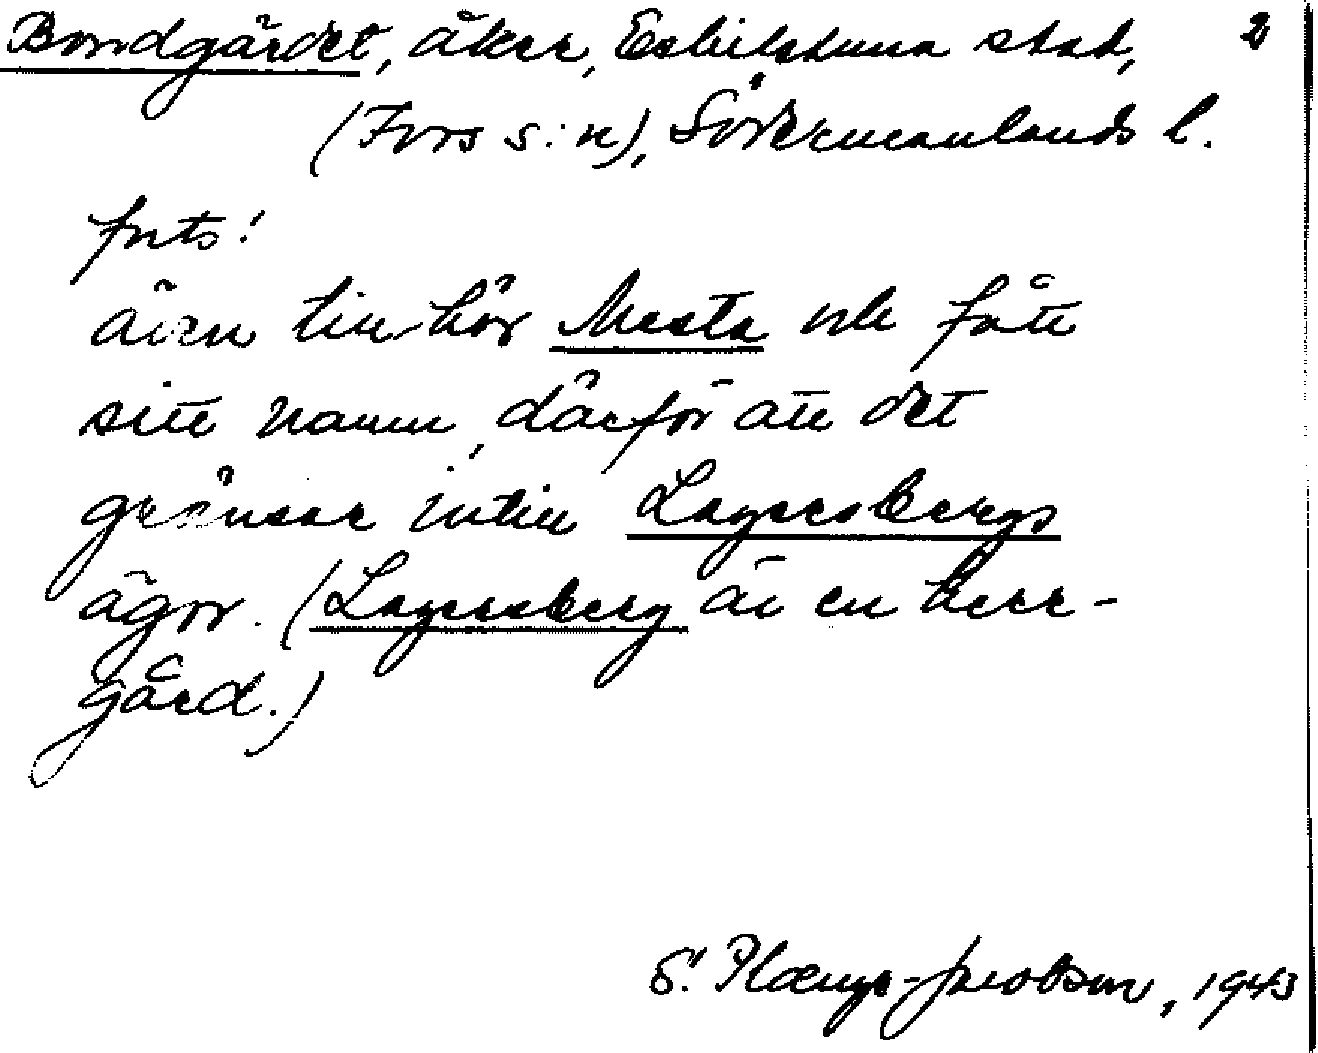 Bondgärdet, åker, Eskilstuna stad, 2
(Fors s:n), Södermanlands l.
forts!
även tillhör Mesta och fått
sitt namn, därför att det
gränsar intill Lagersbergs
ägor. (Lagersberg är en herr-
gård.)
S. -Jacobson, 1943